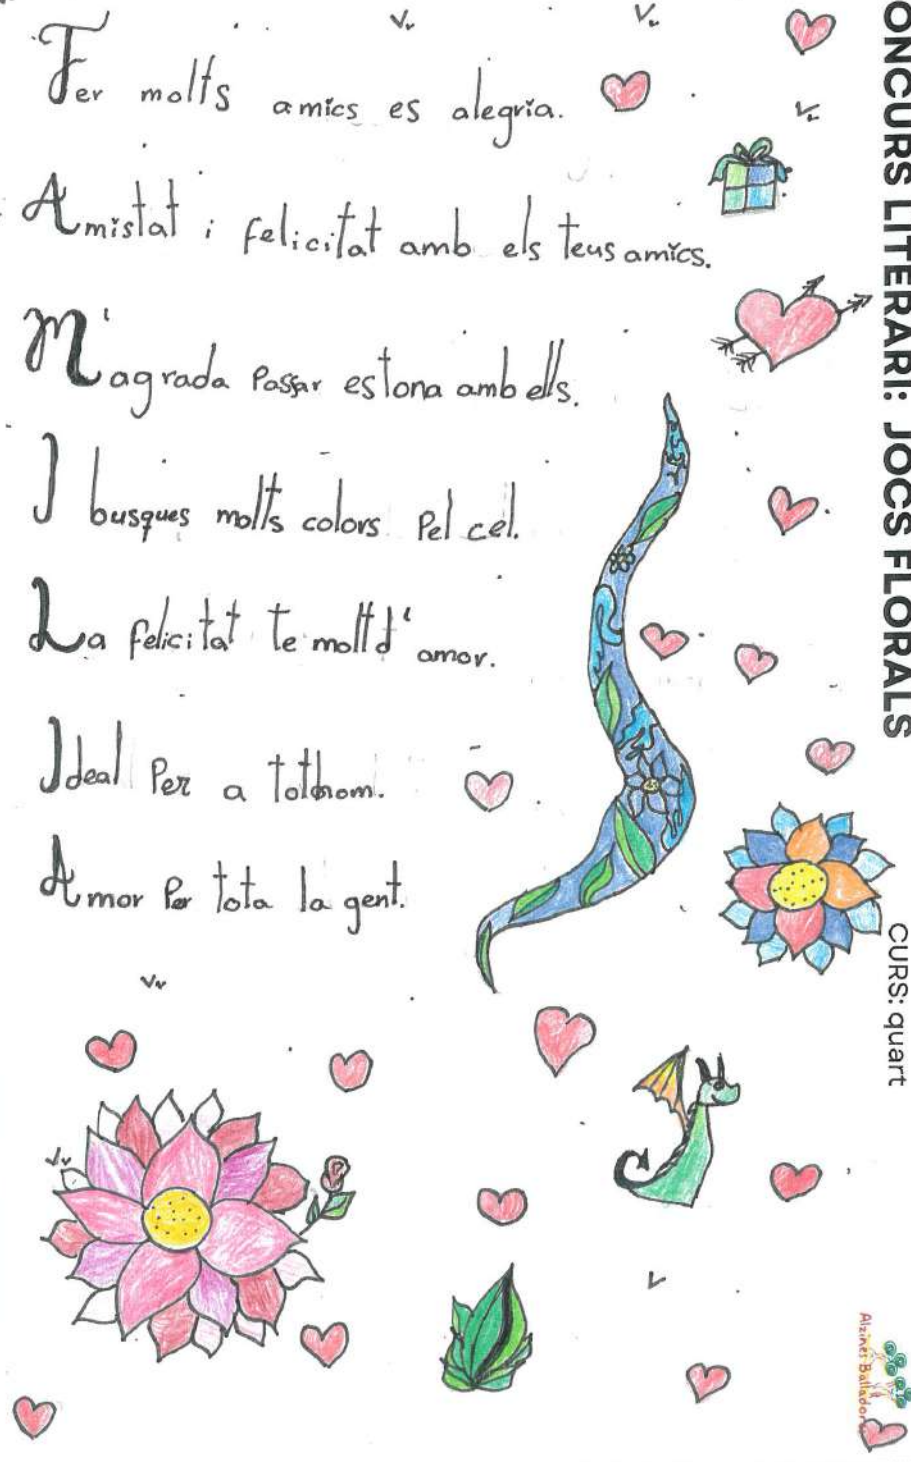 Fer molts amics es alegria.
Amistat i felicitat amb els teus amics.
M'agrada Passar estona amb ells.
I busques molts colors Pel cel.
La felicitat te molt d'amor.
Ideal Per a tothom.
Amor Per tota la gent.
ONCURS LITERARI: JOCS FLORALS
CURS: quart
Alzines Balladore